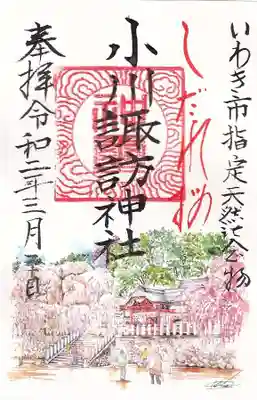 いわき市指定天然記念物
しだれ桜
小川諏訪神社
奉拝令和二年三月